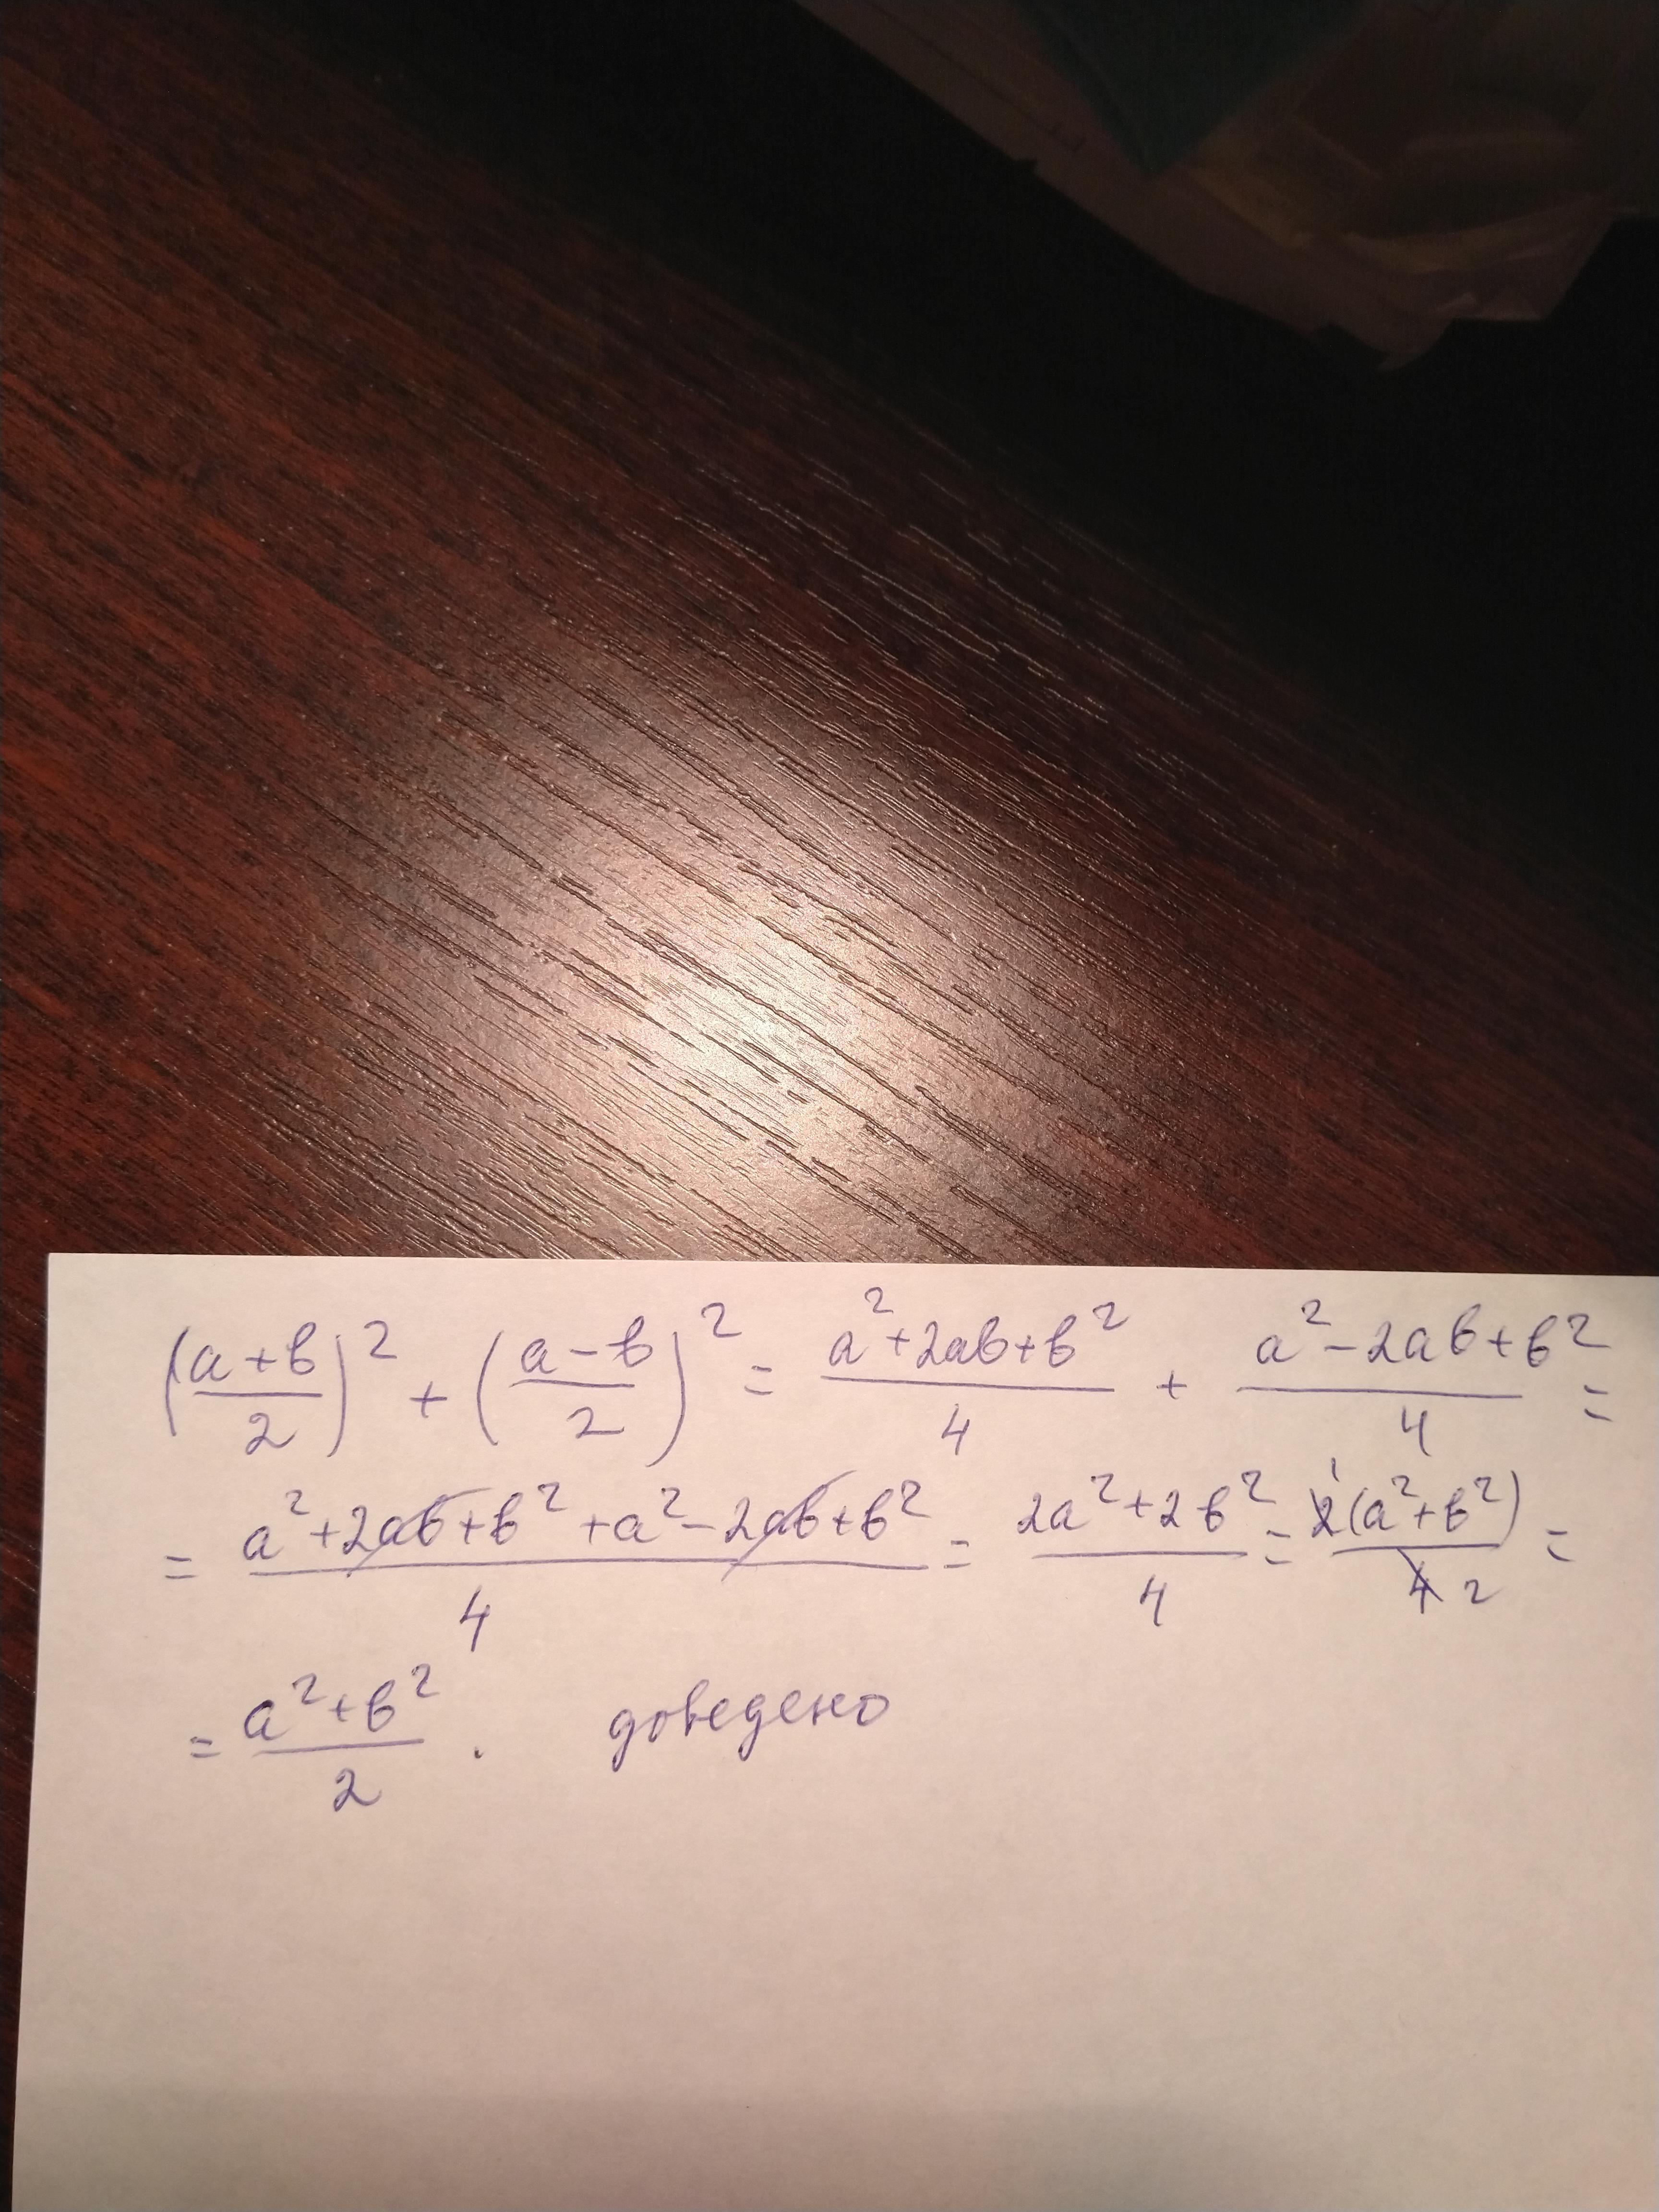 (a+b/2)² + (a-b/2)² = a²+2ab+b²/4 + a²-2ab+b²/4 =
= a²+2ab+b²+a²-2ab+b²/4 = 2a²+2b²/4 = 2(a²+b²)/4 =
= a²+b²/2 . доведено